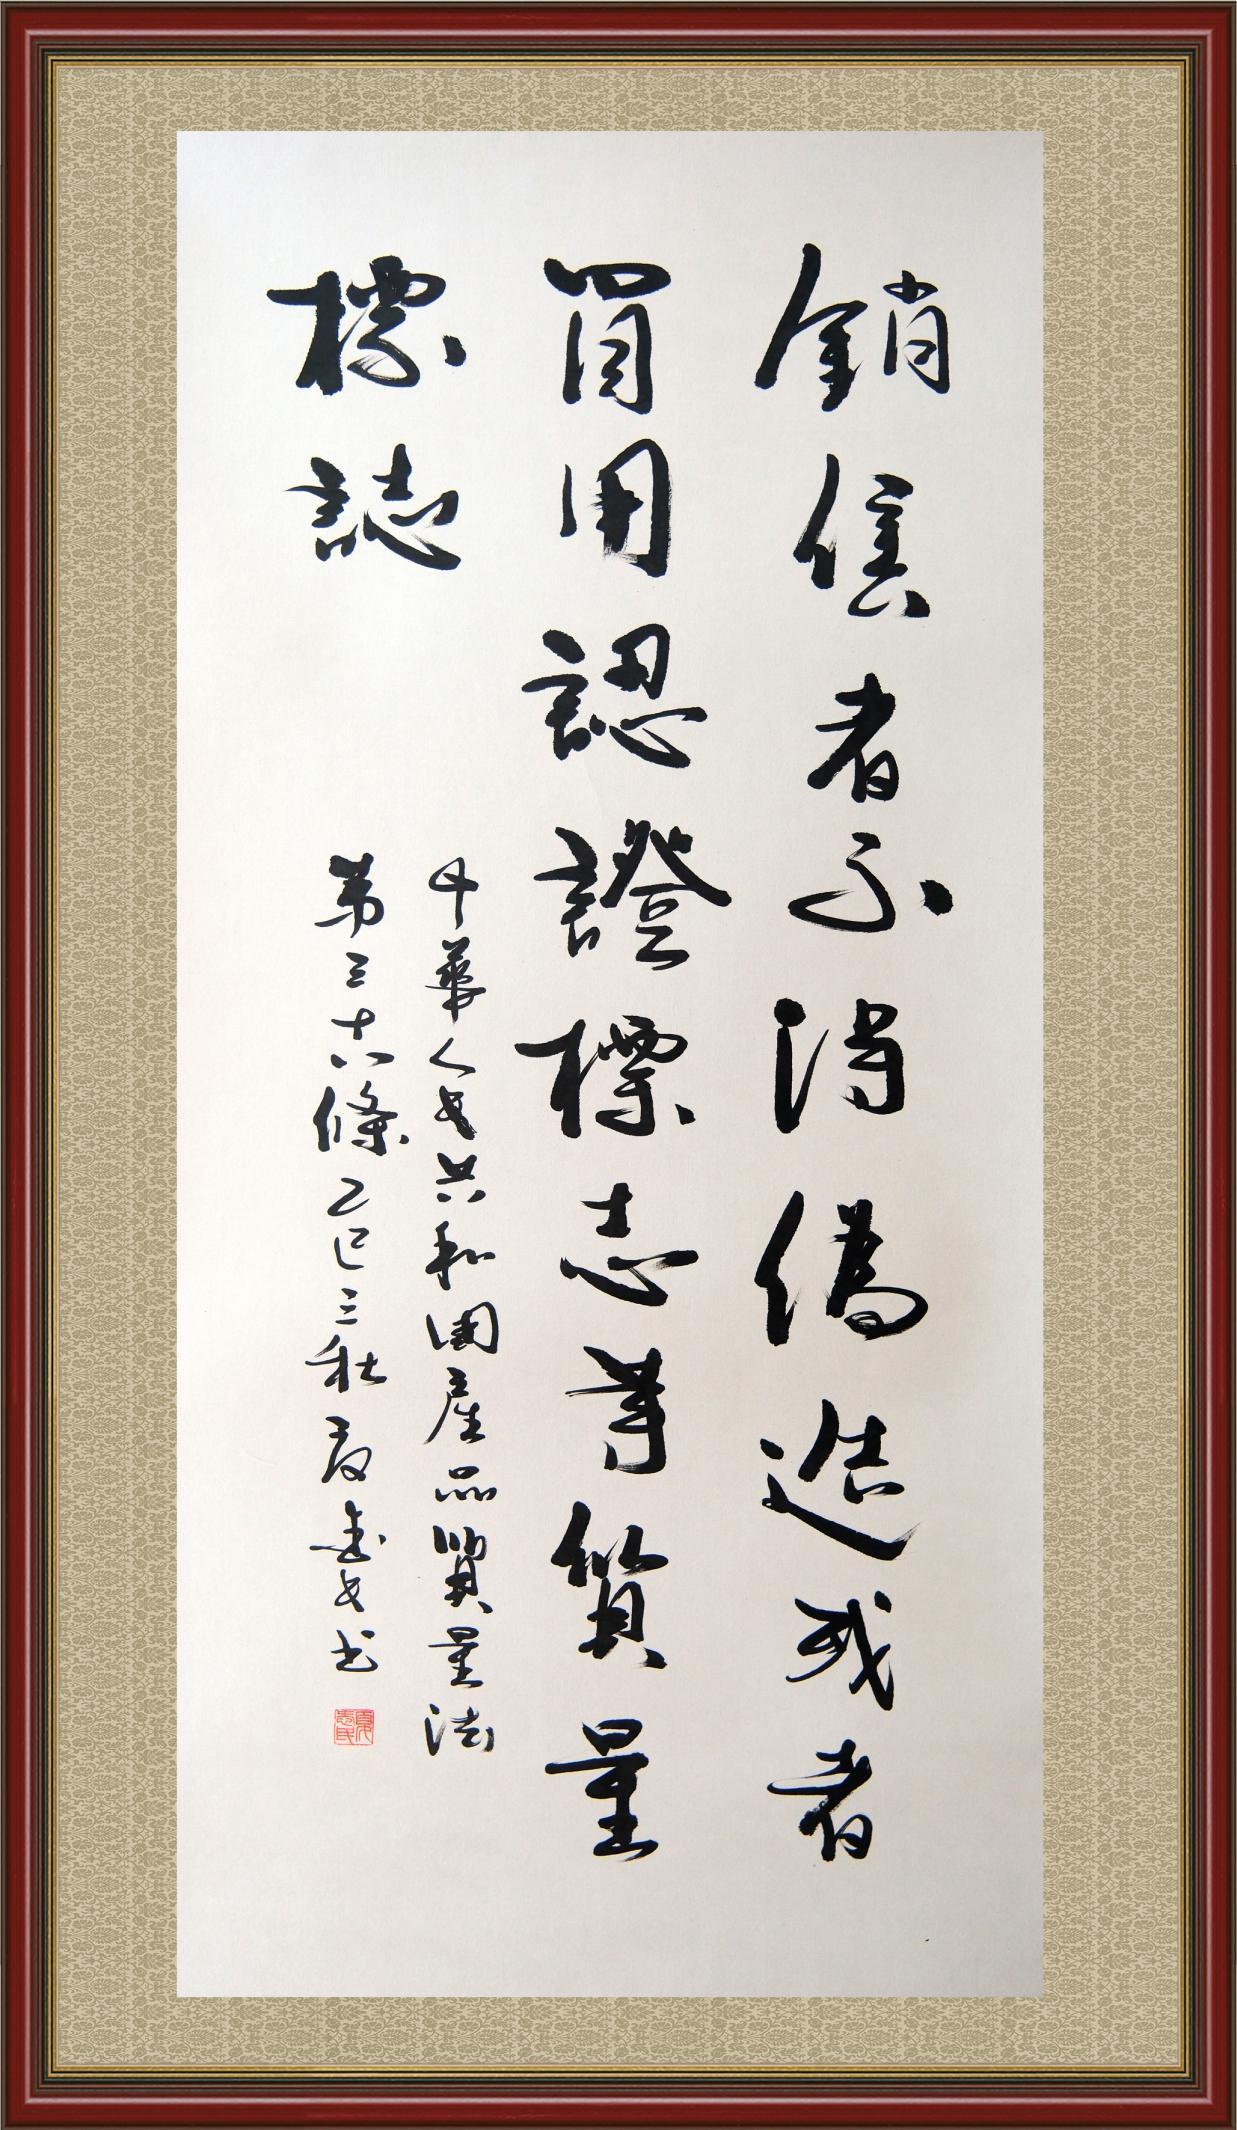 銷售者不得偽造或者
冒用認證標志等質量
標誌
中華人民共和國產品質量法
第三十八條乙巳三秋夏志民书
夏志民